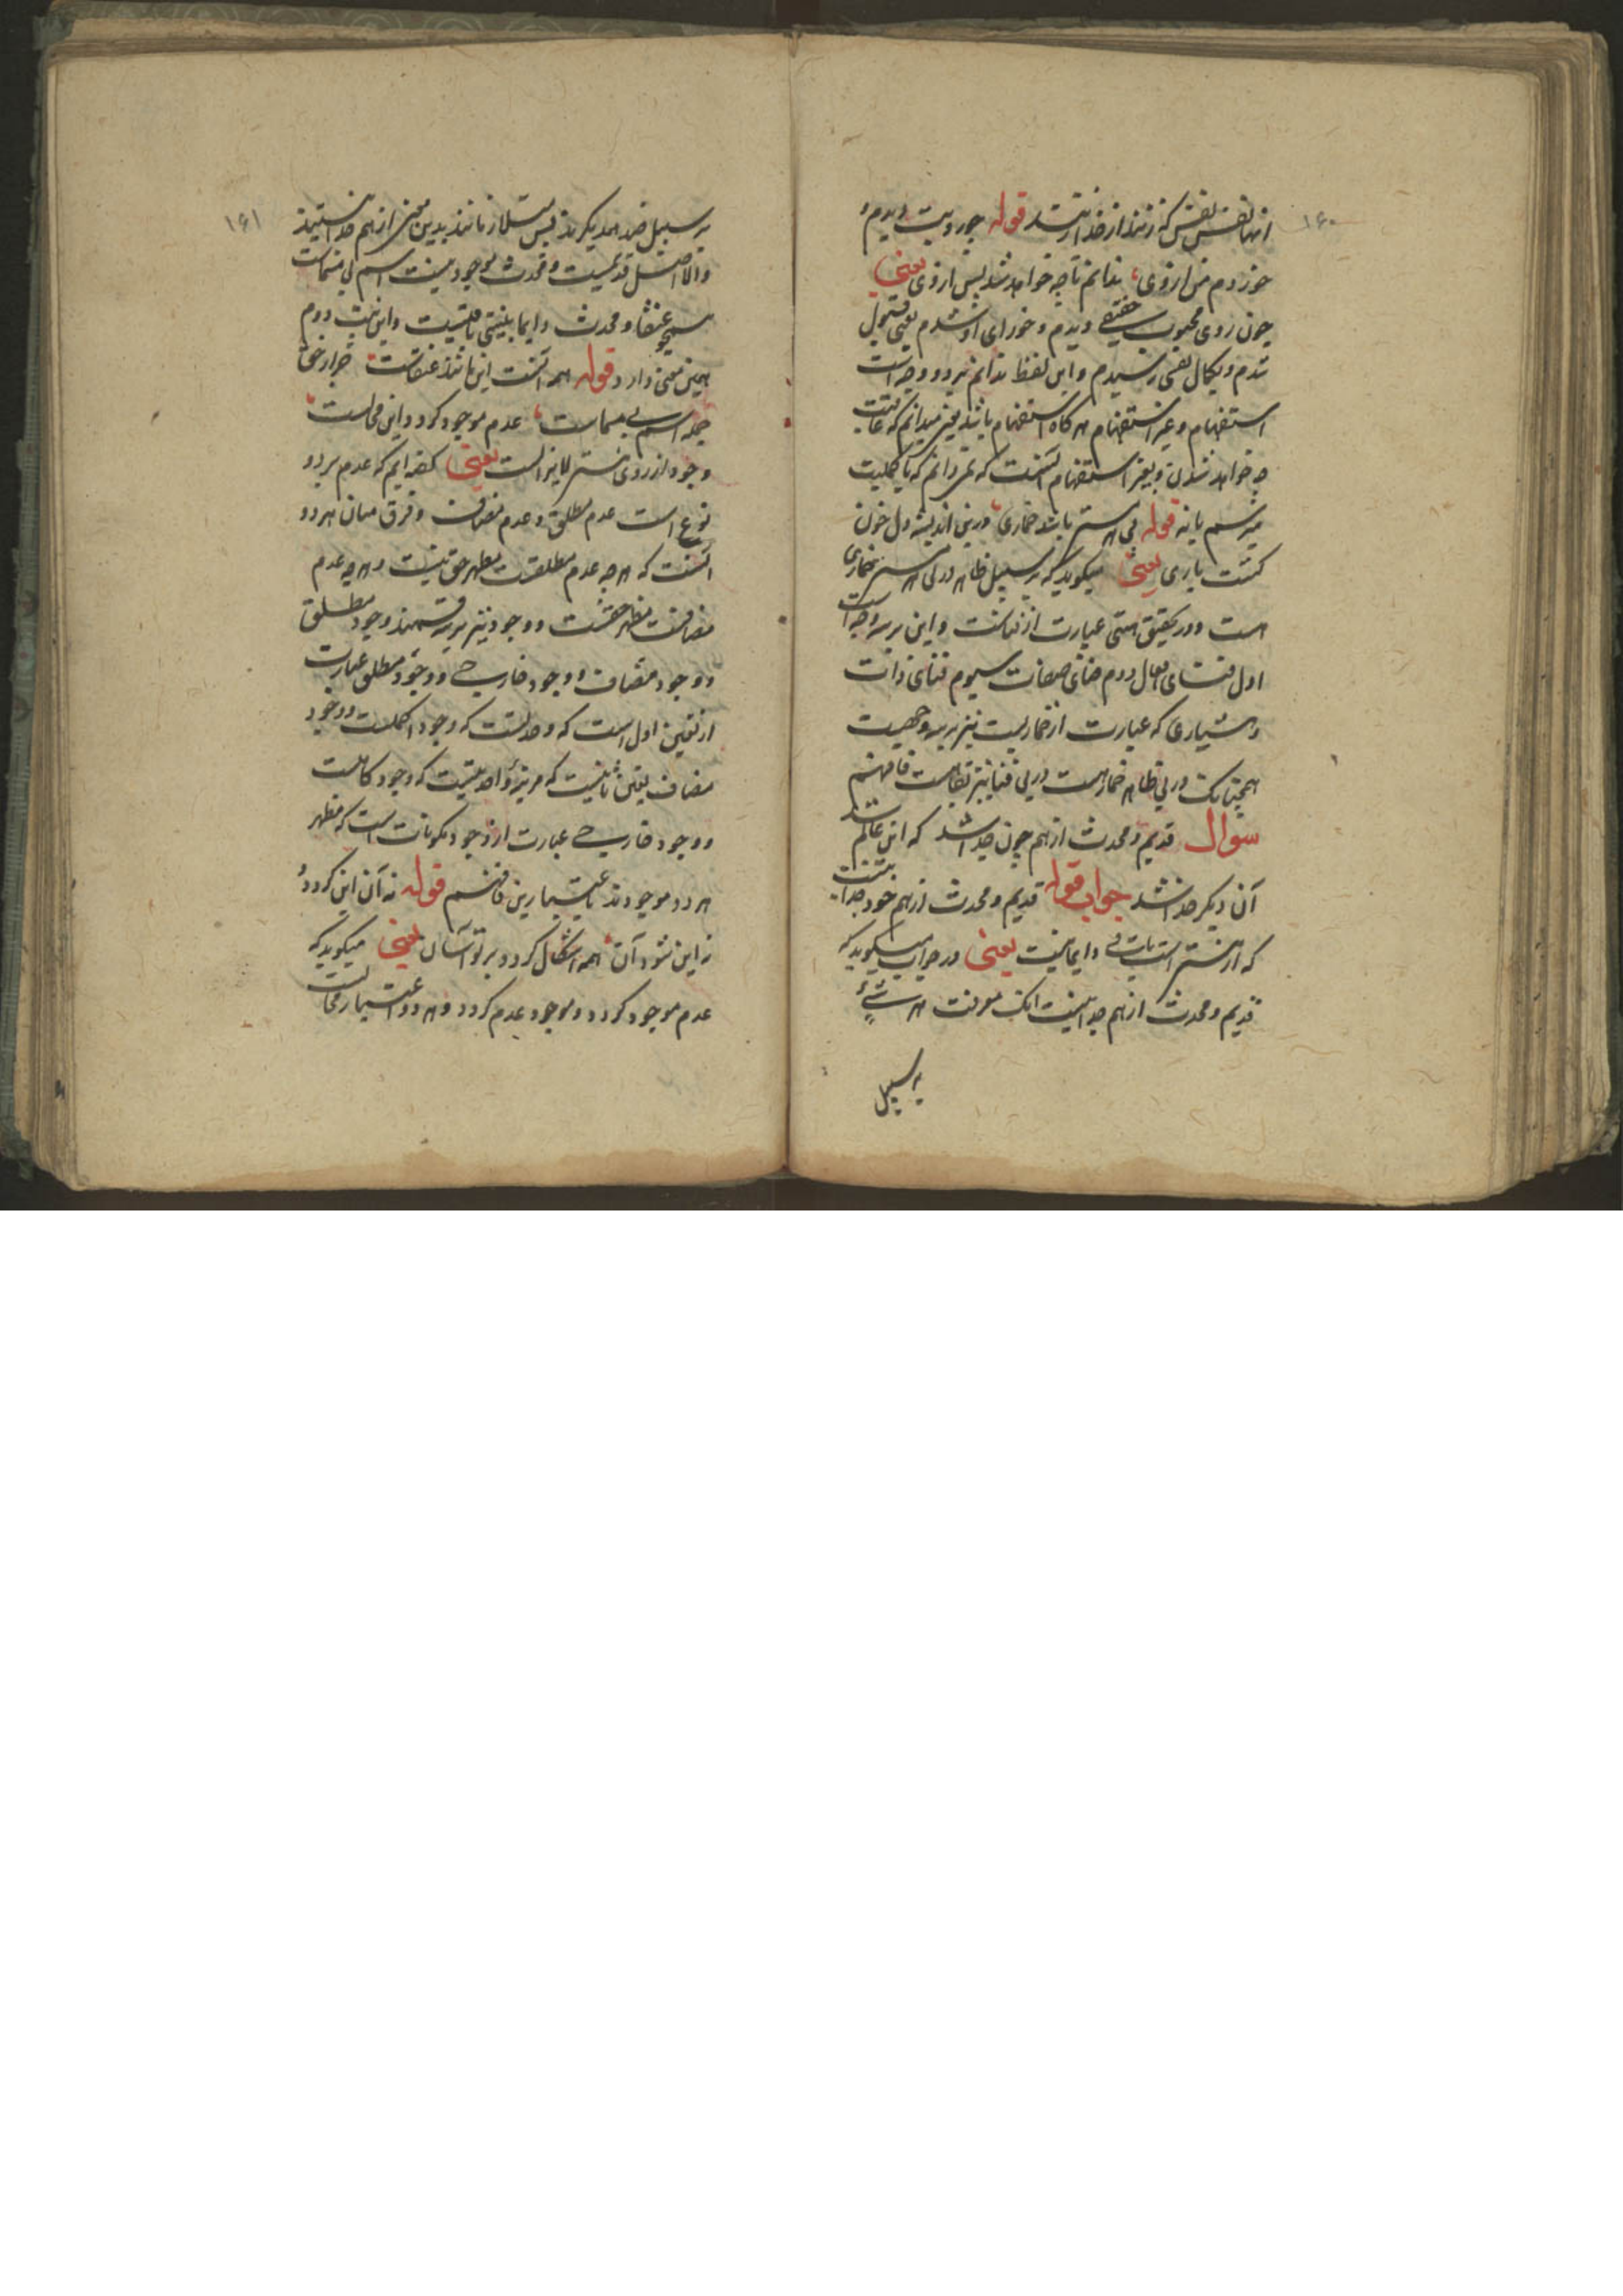 ۱۶۰
انها نفس نفس که زنند از خدا زنند قوله چو رویت دیدم
خوردم من از وی ندانم تا چه خواهد شد پس از وی یعنی
چون روی محبوب حقیقی دیدم و خورای او شدم یعنی قبول
شدم و بکمال نفس رسیدم و این لفظ ندانم بر دو وجه است
استفهام و غیر استفهام هرگاه استفهام باشد یعنی میدانم که عاقبت
چه خواهد شدن و بغیر استفهام آنست که نمیدانم که بکلیت
میرسم یا نه قوله پی هر مستی باشد خماری درین اندیشه دل خون
گشت باری یعنی میگوید که بر سبیل ظاهر در پی هر مستی خماری
است و در تحقیق مستی عبارت از فناست و این بر سه وجه است
اول فنای افعال دوم فنای صفات سیوم فنای ذات
وهشیاری که عبارت از خماریست نیز بر سه وجهیست
همچنانک در پی ظاهر خمار هست در پی فنا نیز بقا هست فافهم
سوال قدیم و محدث از هم چون جدا شد که این عالم شد
آن دیگر خدا شد جواب قوله قدیم و محدث از هم خود جدا نیست
که از هستی است باقی دایما نیست یعنی در جواب میگوید که
قدیم و محدث از هم جدا نیست انک معرفت هر شیٔ
بر سبیل
۱۶۱
بر سبیل ضد همدیگرند پس مستلزمانند بدین معنی از هم جدا نیستند
والا اصل قدیمیست و محدث موجود نیست اسم بی مسماست
همچو عنقا و محدث دایما به نیستی باقیست و این بیت دوم
همین معنی دارد قوله همه آنست این مانند عنقاست جز از حق
جمله اسم بی مسماست عدم موجود گردد این محالست
وجود از روی هستی لایزالست یعنی گفته ایم که عدم بر دو
نوع است عدم مطلق و عدم مضاف و فرق میان هر دو
آنست که هر چه عدم مطلقست مظهر حق نیست و هر چه عدم
مضافست مظهر حقست و وجود نیز بر سه قسمند وجود مطلق
و وجود مضاف و وجود خارجی و وجود مطلق عبارت
از تعین اول است که وحدتست که وجود اکملست و وجود
مضاف تعین ثانیست که مرتبۀ واحدیتیست که وجود کاملست
و وجود خارجی عبارت از وجود مکونات است که مظهر
هر دو موجودند باعتبارین فافهم قوله نه آن این گردد و
نه این شود آن همه اشکال گردد بر تو آسان یعنی میگوید که
عدم موجود گردد و موجود عدم گردد و هر دو اعتبار محالست